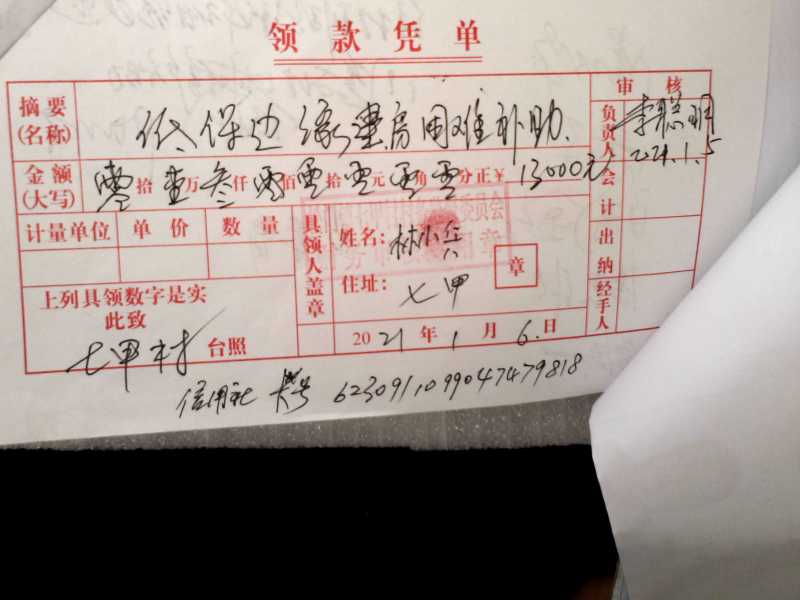 领款凭单
审核
摘要(名称) 低保边缘建房困难补助.
负责人 李聪明 2021.1.5
金额(大写) 零拾壹万叁仟零佰零拾零元零角零分正¥ 13000元
会计
计量单位 单价 数量
具领人盖章
姓名: 林小兵
住址: 七甲
章
出纳
上列具领数字是实
此致
七甲村 台照
2021年1月6.日
经手人
信用社 卡号 6230911099047479818